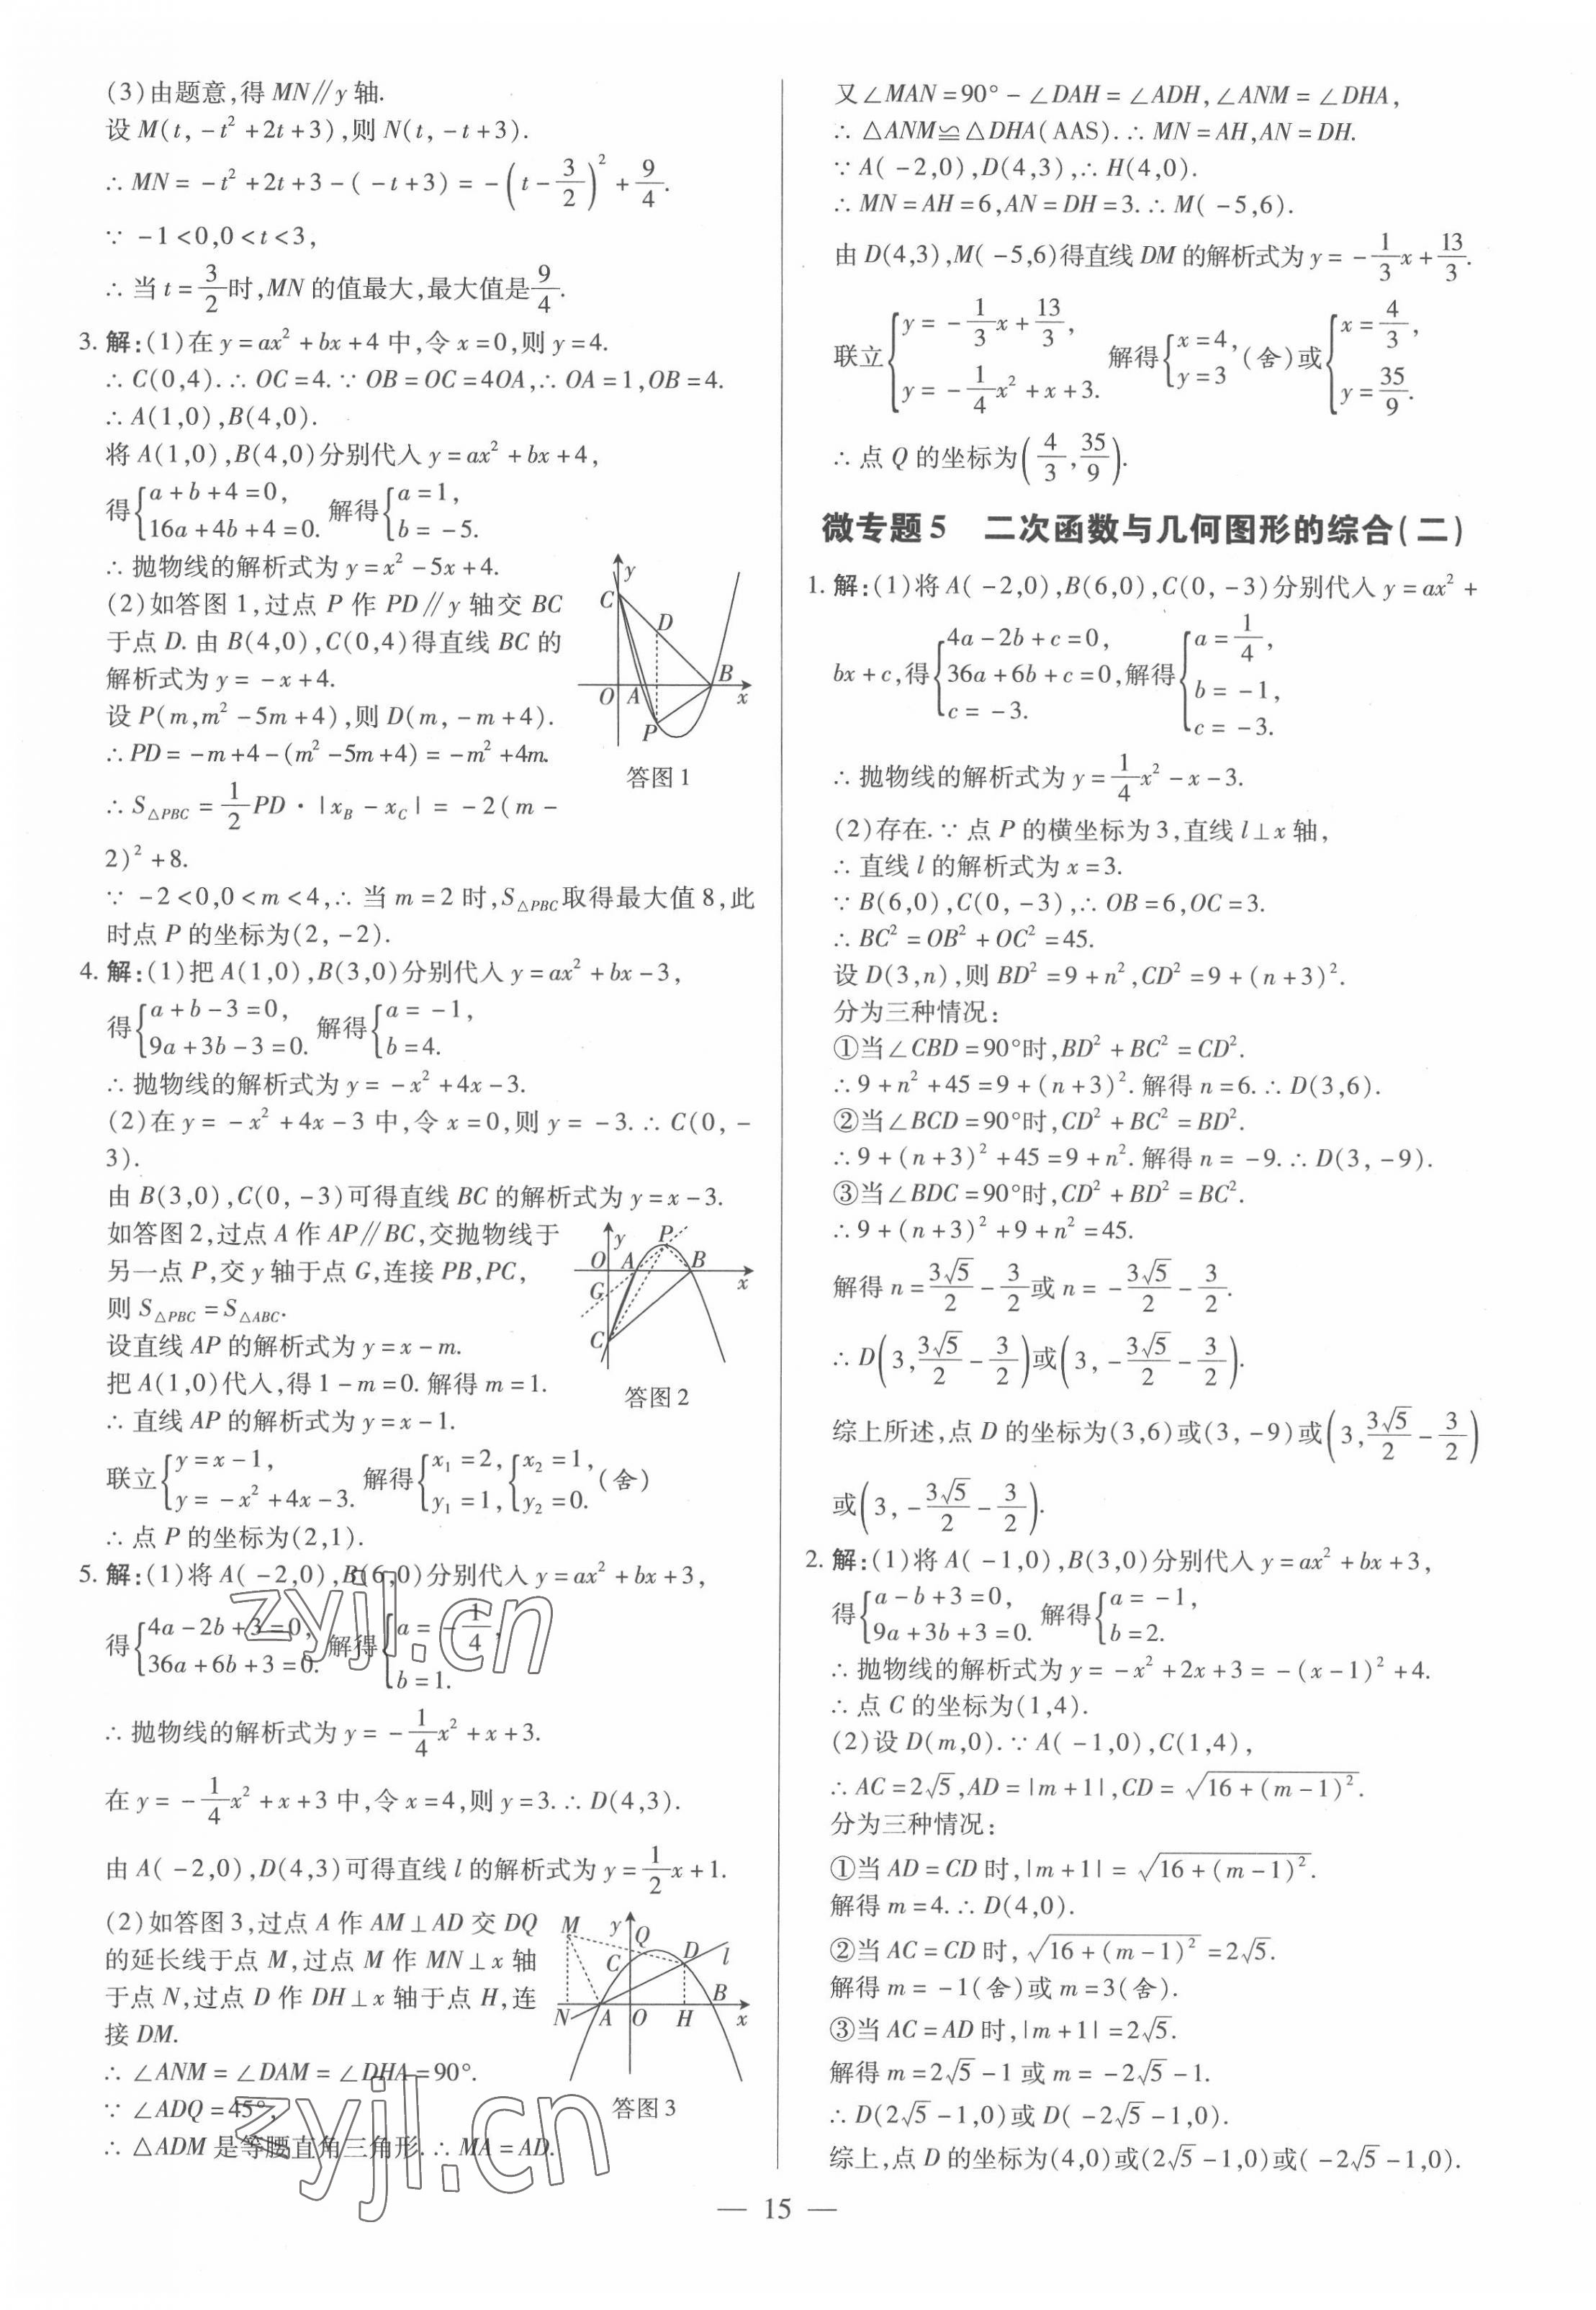 (3)由题意,得 MN∥y 轴.
设 M(t, -t² +2t+3),则 N(t, -t+3).
∴ MN = -t² +2t+3-( -t+3) = -(t-3/2)² + 9/4.
∵ -1<0,0<t<3,
∴ 当 t=3/2时,MN 的值最大,最大值是9/4.
3. 解:(1)在 y=ax² +bx+4 中,令 x=0,则 y=4.
∴ C(0,4). ∴ OC=4. ∵ OB=OC=4OA,∴ OA=1,OB=4.
∴ A(1,0),B(4,0).
将 A(1,0),B(4,0)分别代入 y=ax² +bx+4,
得{a+b+4=0, 16a+4b+4=0. 解得{a=1, b= -5.
∴ 抛物线的解析式为 y=x² -5x+4.
(2)如答图 1,过点 P 作 PD∥y 轴交 BC
于点 D. 由 B(4,0),C(0,4)得直线 BC 的
解析式为 y= -x+4.
设 P(m,m² -5m+4),则 D(m, -m+4).
∴ PD= -m+4-(m² -5m+4)= -m² +4m.
∴ S△PBC = 1/2 PD·|xB - xC| = -2(m-
2)² +8.
y
C
D
B
O
A
x
P
答图 1
∵ -2<0,0<m<4,∴ 当 m=2 时,S△PBC取得最大值 8,此
时点 P 的坐标为(2, -2).
4. 解:(1)把 A(1,0),B(3,0)分别代入 y=ax² +bx-3,
得{a+b-3=0, 9a+3b-3=0. 解得{a= -1, b=4.
∴ 抛物线的解析式为 y= -x² +4x-3.
(2)在 y= -x² +4x-3 中,令 x=0,则 y= -3. ∴ C(0, -
3).
由 B(3,0),C(0, -3)可得直线 BC 的解析式为 y=x-3.
如答图 2,过点 A 作 AP∥BC,交抛物线于
另一点 P,交 y 轴于点 G,连接 PB,PC,
则 S△PBC = S△ABC.
设直线 AP 的解析式为 y=x-m.
把 A(1,0)代入,得 1-m=0. 解得 m=1.
∴ 直线 AP 的解析式为 y=x-1.
y
P
O
A
B
x
G
C
答图 2
联立{y=x-1, y= -x² +4x-3. 解得{x₁=2, y₁=1, {x₂=1, y₂=0. (舍)
∴ 点 P 的坐标为(2,1).
5. 解:(1)将 A( -2,0),B(6,0)分别代入 y=ax² +bx+3,
得{4a-2b+3=0, 36a+6b+3=0. 解得{a= -1/4, b=1.
∴ 抛物线的解析式为 y= -1/4x² +x+3.
在 y= -1/4x² +x+3 中,令 x=4,则 y=3. ∴ D(4,3).
由 A( -2,0),D(4,3)可得直线 l 的解析式为 y=1/2x+1.
(2)如答图 3,过点 A 作 AM⊥AD 交 DQ
的延长线于点 M,过点 M 作 MN⊥x 轴
于点 N,过点 D 作 DH⊥x 轴于点 H,连
接 DM.
∴ ∠ANM=∠DAM=∠DHA=90°.
∵ ∠ADQ=45°,
∴ △ADM 是等腰直角三角形. ∴ MA=AD.
M
y
Q
D
l
C
B
N
A
O
H
x
答图 3
又∠MAN=90°-∠DAH=∠ADH,∠ANM=∠DHA,
∴ △ANM≌△DHA(AAS). ∴ MN=AH,AN=DH.
∵ A( -2,0),D(4,3),∴ H(4,0).
∴ MN=AH=6,AN=DH=3. ∴ M( -5,6).
由 D(4,3),M( -5,6)得直线 DM 的解析式为 y= -1/3x+13/3.
联立{y= -1/3x+13/3, y= -1/4x² +x+3. 解得{x=4, y=3 (舍)或{x=4/3, y=35/9.
∴ 点 Q 的坐标为(4/3, 35/9).
微专题 5 二次函数与几何图形的综合(二)
1. 解:(1)将 A( -2,0),B(6,0),C(0, -3)分别代入 y=ax² +
bx+c,得{4a-2b+c=0, 36a+6b+c=0, c= -3. 解得{a=1/4, b= -1, c= -3.
∴ 抛物线的解析式为 y=1/4x² -x-3.
(2)存在. ∵ 点 P 的横坐标为 3,直线 l⊥x 轴,
∴ 直线 l 的解析式为 x=3.
∵ B(6,0),C(0, -3),∴ OB=6,OC=3.
∴ BC² =OB² +OC² =45.
设 D(3,n),则 BD² =9+n²,CD² =9+(n+3)².
分为三种情况:
①当∠CBD=90°时,BD² +BC² =CD².
∴ 9+n² +45=9+(n+3)². 解得 n=6. ∴ D(3,6).
②当∠BCD=90°时,CD² +BC² =BD².
∴ 9+(n+3)² +45=9+n². 解得 n= -9. ∴ D(3, -9).
③当∠BDC=90°时,CD² +BD² =BC².
∴ 9+(n+3)² +9+n² =45.
解得 n=3√5/2 - 3/2或 n= -3√5/2 - 3/2.
∴ D(3, 3√5/2 - 3/2)或(3, -3√5/2 - 3/2).
综上所述,点 D 的坐标为(3,6)或(3, -9)或(3, 3√5/2 - 3/2)
或(3, -3√5/2 - 3/2).
2. 解:(1)将 A( -1,0),B(3,0)分别代入 y=ax² +bx+3,
得{a-b+3=0, 9a+3b+3=0. 解得{a= -1, b=2.
∴ 抛物线的解析式为 y= -x² +2x+3= -(x-1)² +4.
∴ 点 C 的坐标为(1,4).
(2)设 D(m,0). ∵ A( -1,0),C(1,4),
∴ AC=2√5,AD=|m+1|,CD=√(16+(m-1)²).
分为三种情况:
①当 AD=CD 时,|m+1|=√(16+(m-1)²).
解得 m=4. ∴ D(4,0).
②当 AC=CD 时,√(16+(m-1)²)=2√5.
解得 m= -1(舍)或 m=3(舍).
③当 AC=AD 时,|m+1|=2√5.
解得 m=2√5 -1 或 m= -2√5 -1.
∴ D(2√5 -1,0)或 D( -2√5 -1,0).
综上,点 D 的坐标为(4,0)或(2√5 -1,0)或( -2√5 -1,0).
— 15 —
zyjl.cn
zyjl.cn